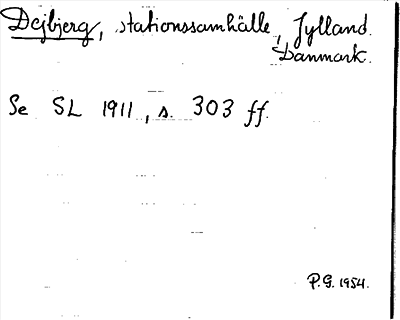 Dejbjerg, stationssamhälle, Jylland.
Danmark.
Se SL 1911, s. 303 ff.
P.G. 1954.